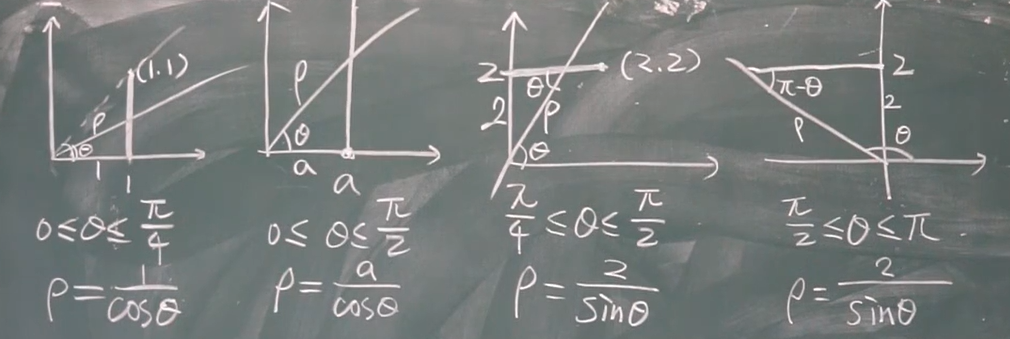 (1.1)
ρ
θ
1
1
0≤θ≤π/4
ρ=1/cosθ
ρ
θ
a
a
0≤θ≤π/2
ρ=a/cosθ
2
(2.2)
θ
2
ρ
θ
π/4≤θ≤π/2
ρ=2/sinθ
2
π-θ
2
ρ
θ
π/2≤θ≤π
ρ=2/sinθ